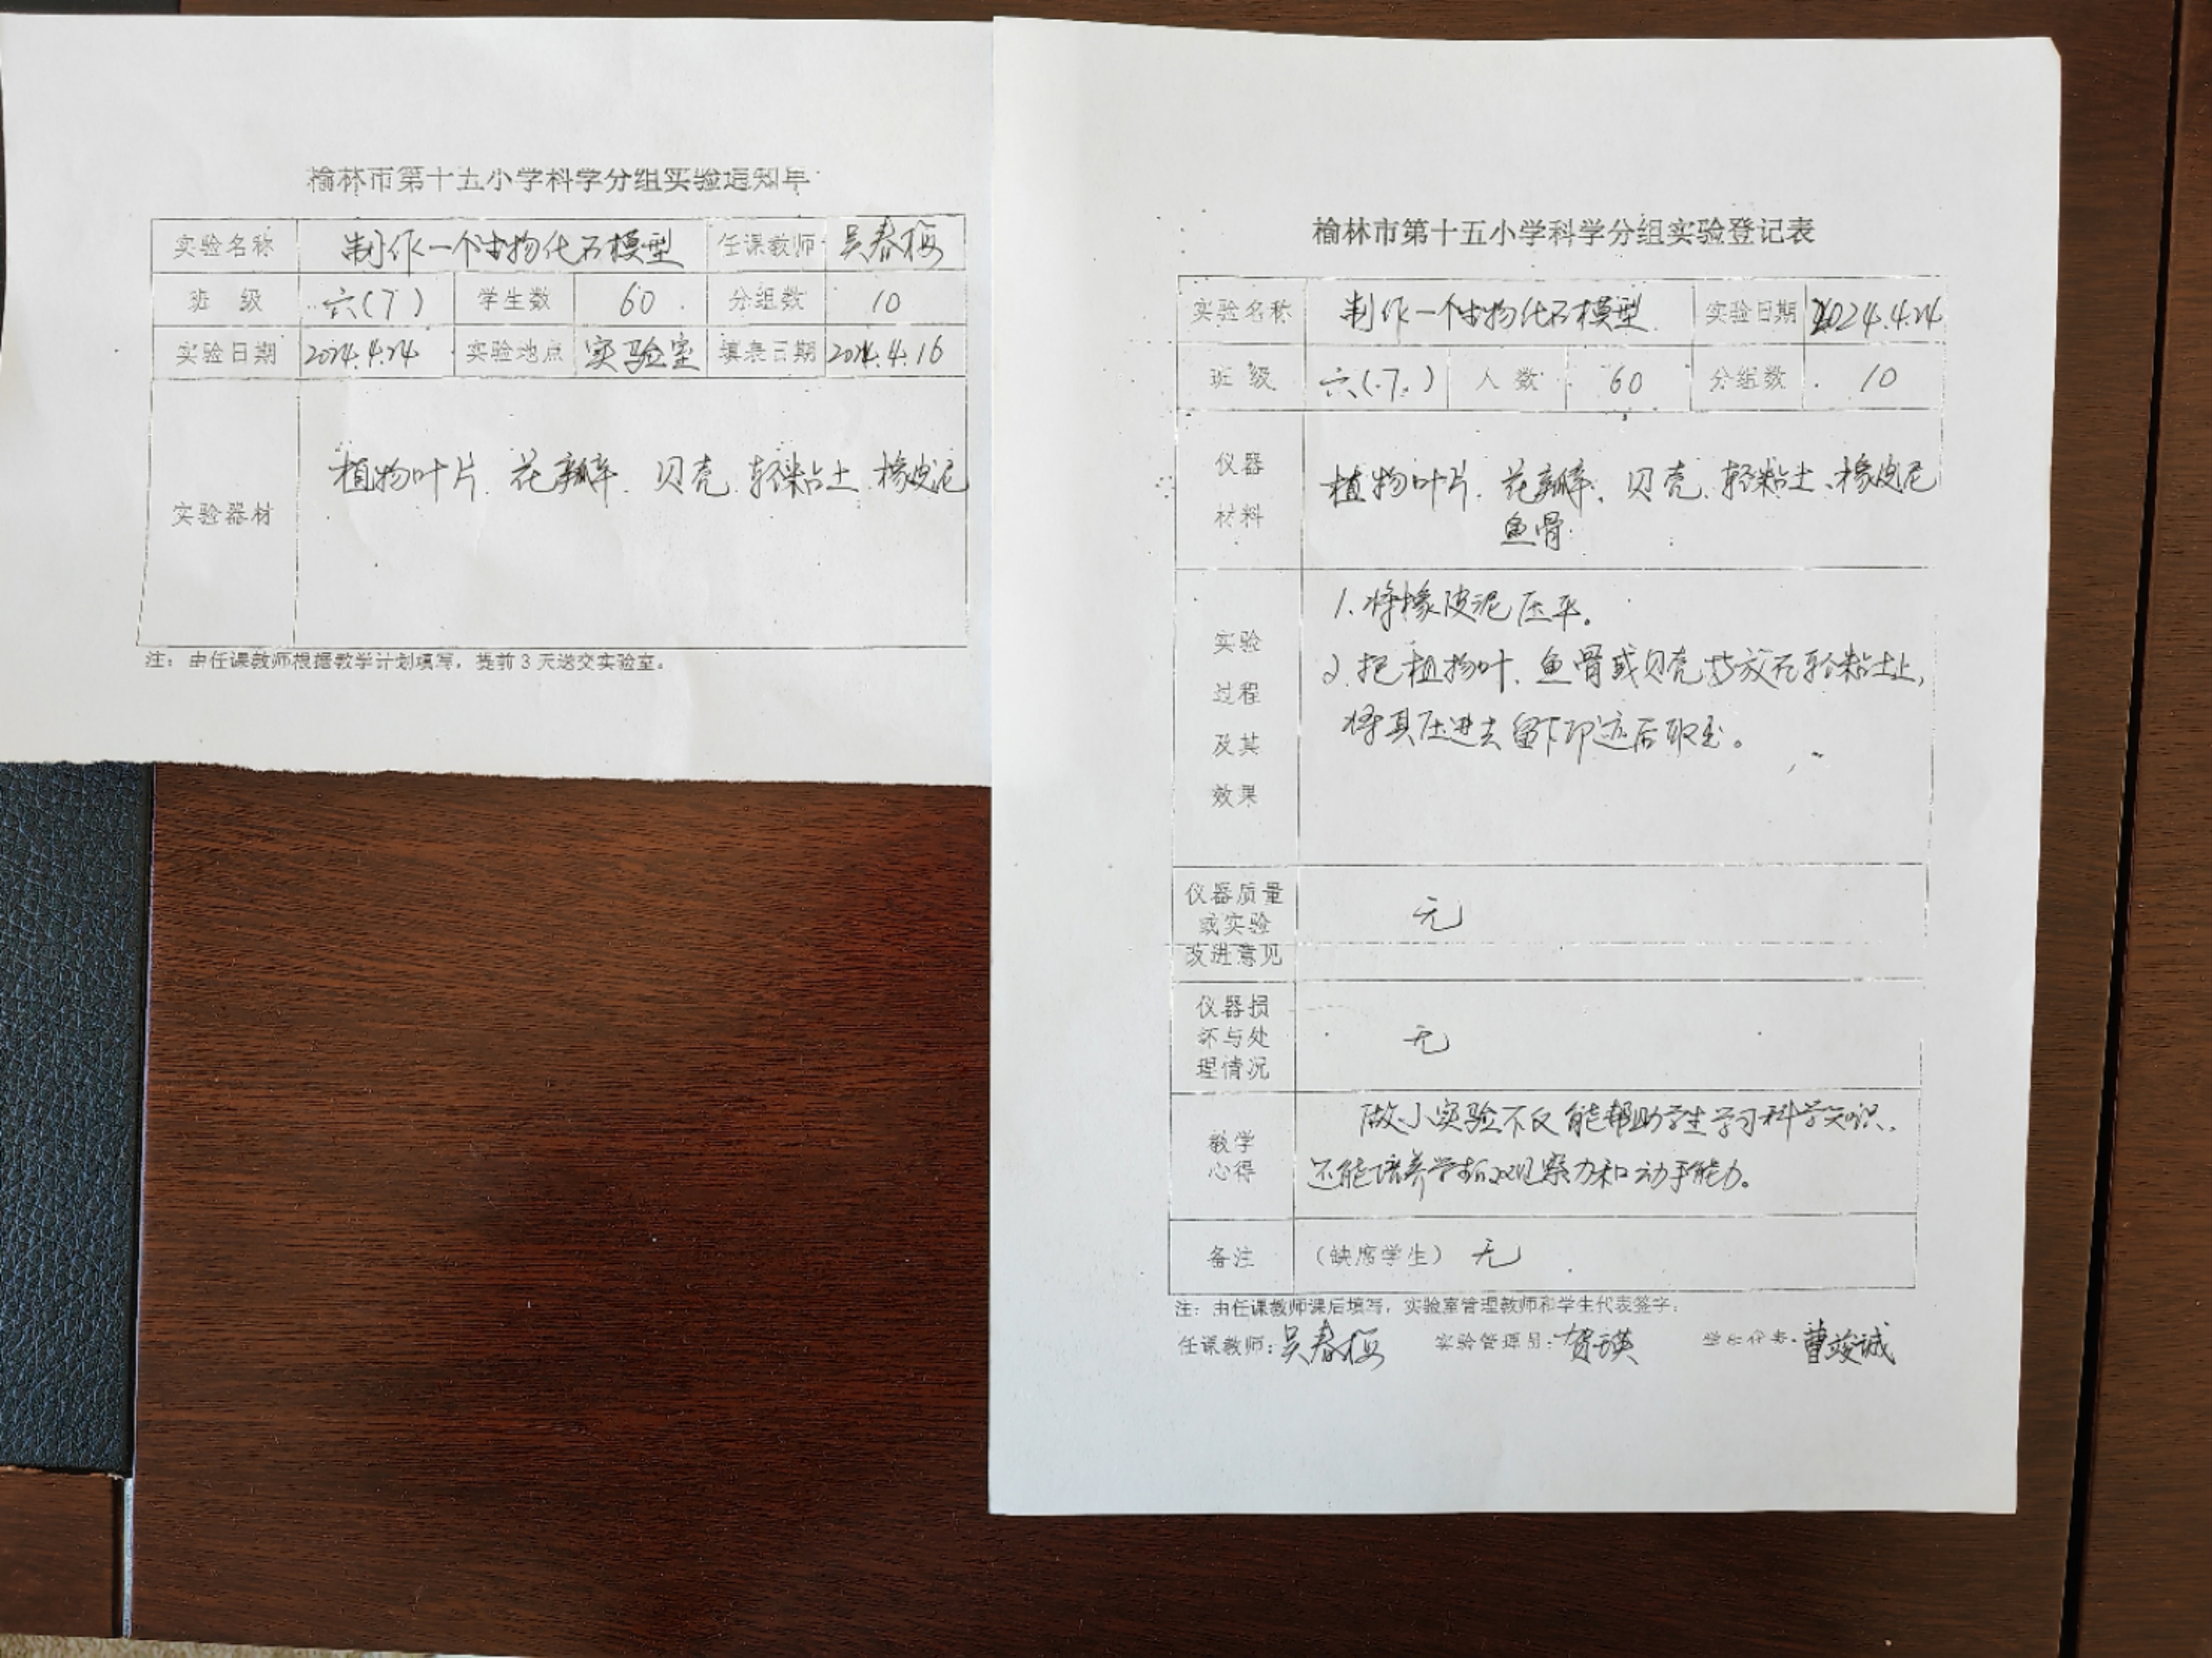 榆林市第十五小学科学分组实验通知单
实验名称 制作一个生物化石模型 任课教师 吴春梅
班 级 六(7) 学生数 60 分组数 10
实验日期 2024.4.24 实验地点 实验室 填表日期 2024.4.16
实验器材 植物叶片、花瓣、贝壳、轻粘土、橡皮泥
注：由任课教师根据教学计划填写，提前3天送交实验室。
榆林市第十五小学科学分组实验登记表
实验名称 制作一个生物化石模型 实验日期 2024.4.24
班 级 六(7) 人 数 60 分组数 10
仪器
材料
植物叶片、花瓣、贝壳、轻粘土、橡皮泥
鱼骨
实验
过程
及其
效果
1.将橡皮泥压平。
2.把植物叶、鱼骨或贝壳放在轻粘土上，
将其压进去留下印迹后取出。
仪器质量
或实验
改进意见
无
仪器损
坏与处
理情况
无
教学
心得
做小实验不仅能帮助学生学习科学知识，
还能培养学生的观察力和动手能力。
备注 （缺席学生） 无
注：由任课教师课后填写，实验室管理教师和学生代表签字；
任课教师：吴春梅 实验管理员：贺瑛 学生代表：曹竣诚